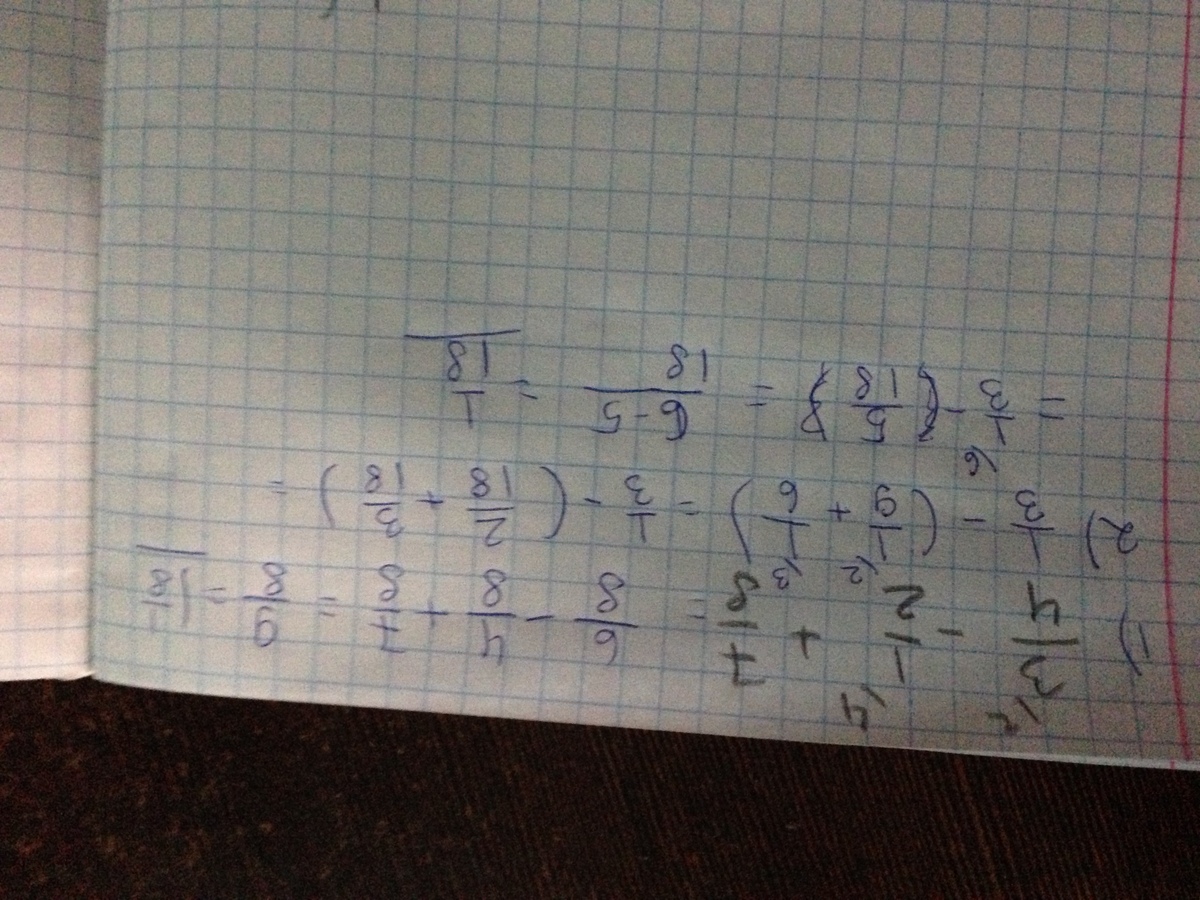 1) 3/4 \2 - 1/2 \4 + 7/8 = 6/8 - 4/8 + 7/8 = 9/8 = 1 1/8
2) 1/3 - (1/9 \2 + 1/6 \3) = 1/3 - (2/18 + 3/18) =
= 1/3 \6 - (5/18) = 6-5/18 = 1/18